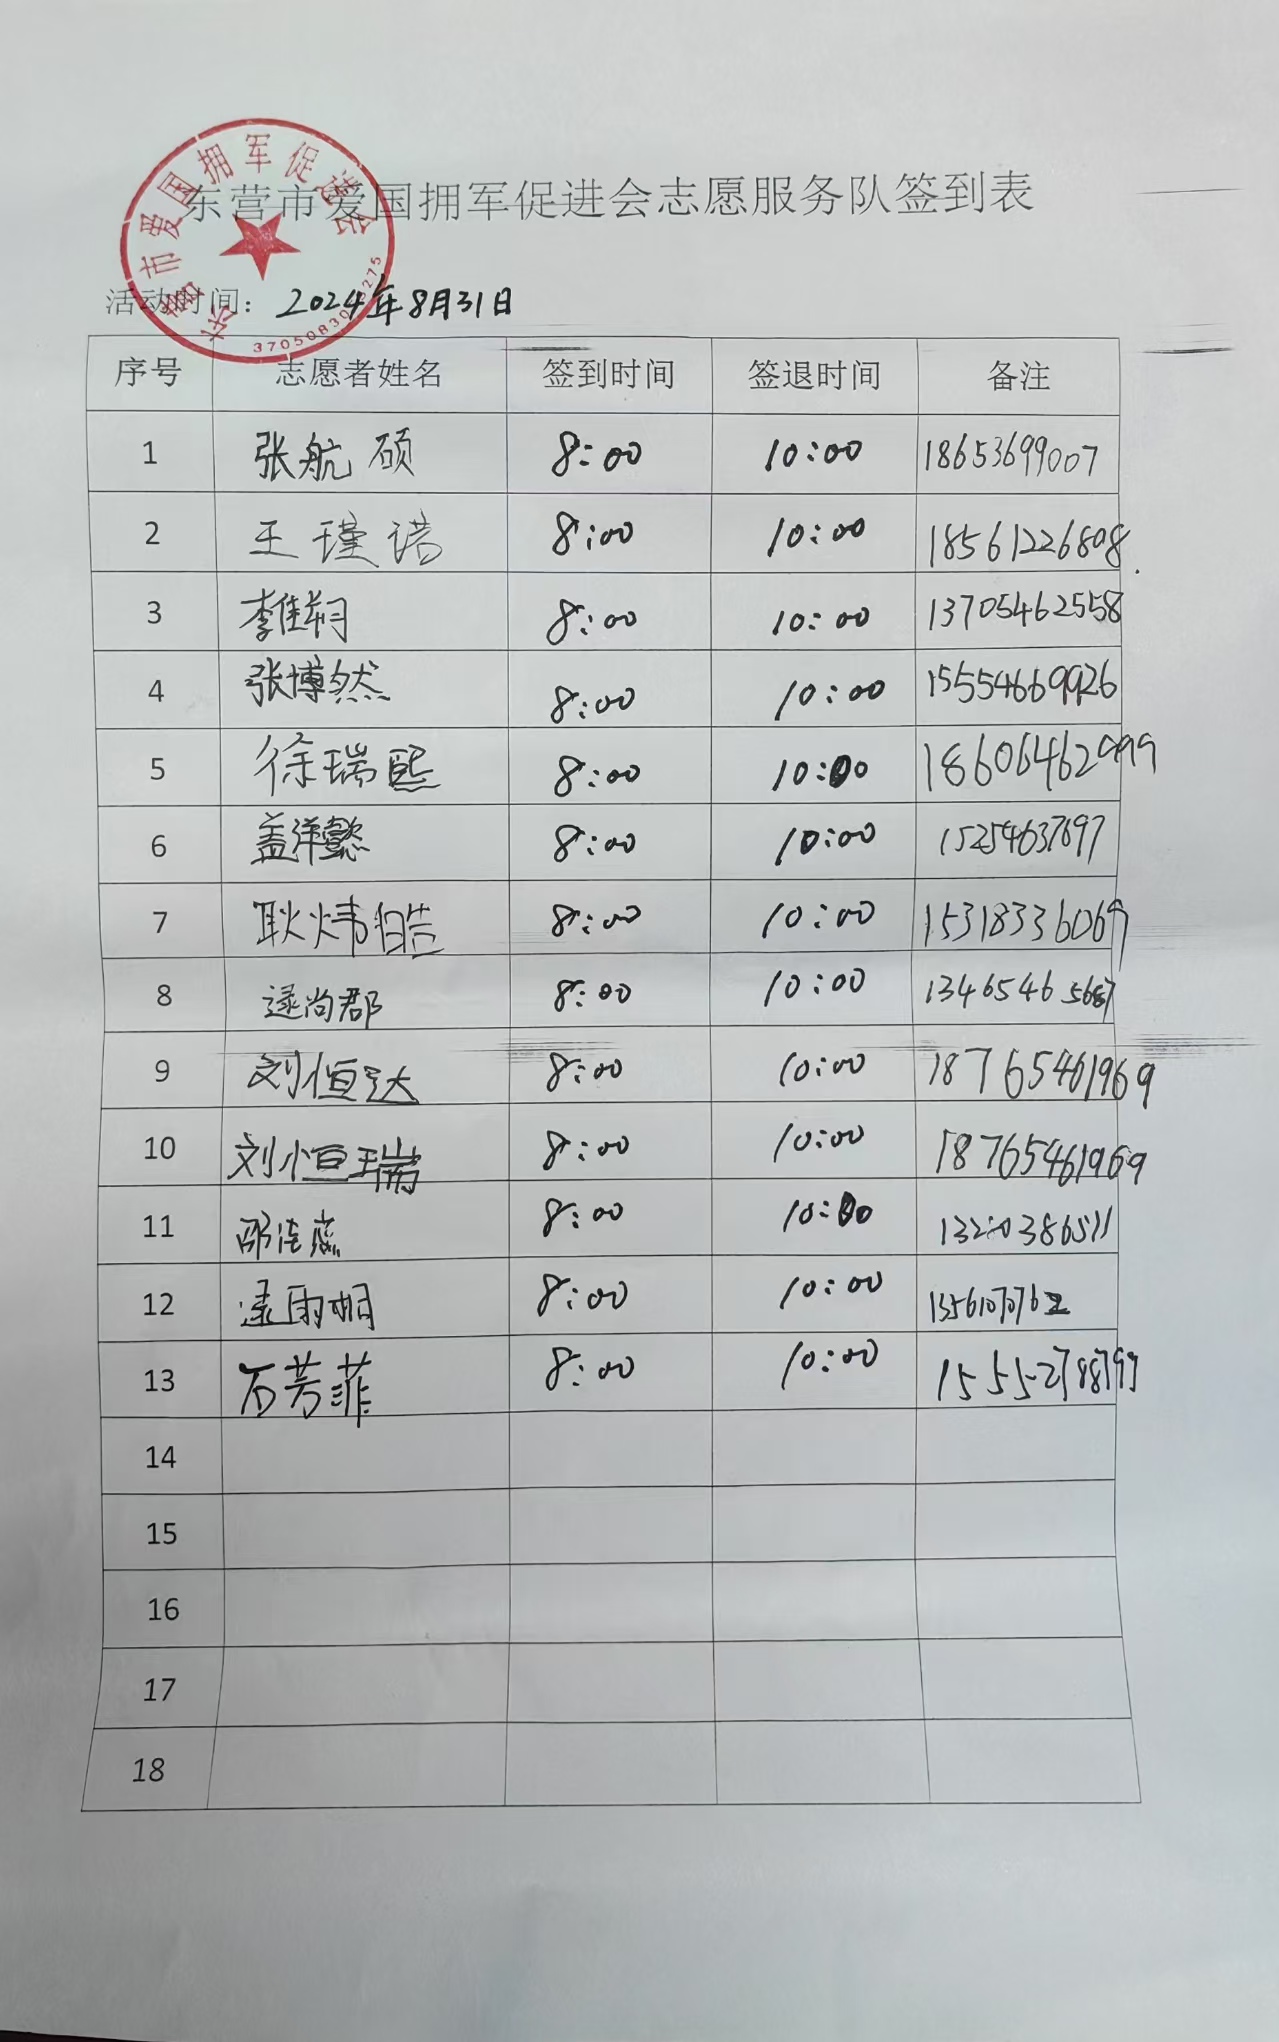 东营市爱国拥军促进会志愿服务队签到表
东营市爱国拥军促进会
活动时间：2024年8月31日
序号 志愿者姓名 签到时间 签退时间 备注
1 张航硕 8:00 10:00 18653699007
2 王瑾诺 8:00 10:00 18561226808
3 李佳朔 8:00 10:00 13705462558
4 张博然 8:00 10:00 15554669926
5 徐瑞熙 8:00 10:00 18606462999
6 盖洋懿 8:00 10:00 15254637697
7 耿炜皓 8:00 10:00 15318336069
8 逯尚郡 8:00 10:00 13465465687
9 刘恒达 8:00 10:00 18765461969
10 刘恒瑞 8:00 10:00 18765461969
11 8:00 10:00
12 逯雨桐 8:00 10:00 13561070762
13 石芳菲 8:00 10:00
14
15
16
17
18